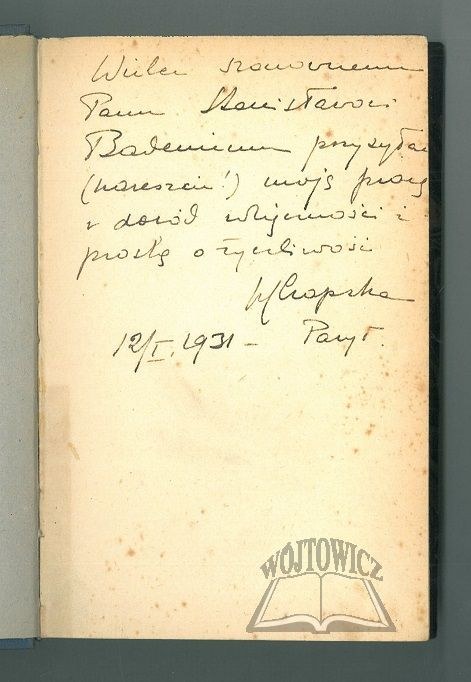 Wielce szanownemu
Panu Stanisławowi
Badeniemu przysyłam
(nareszcie!) moją pracę
w dowód wdzięczności i
proszę o życzliwość
MCzapska
12/I. 1931 – Paryż.
WÓJTOWICZ